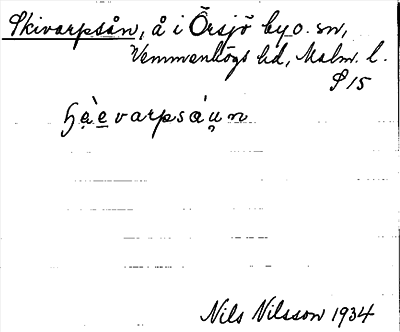 Skivarpsån, å i Örsjö by o. sn,
Vemmenhögs hd, Malm. l.
S 15
ạ̀e̲varpsáu̯n
Nils Nilsson 1934